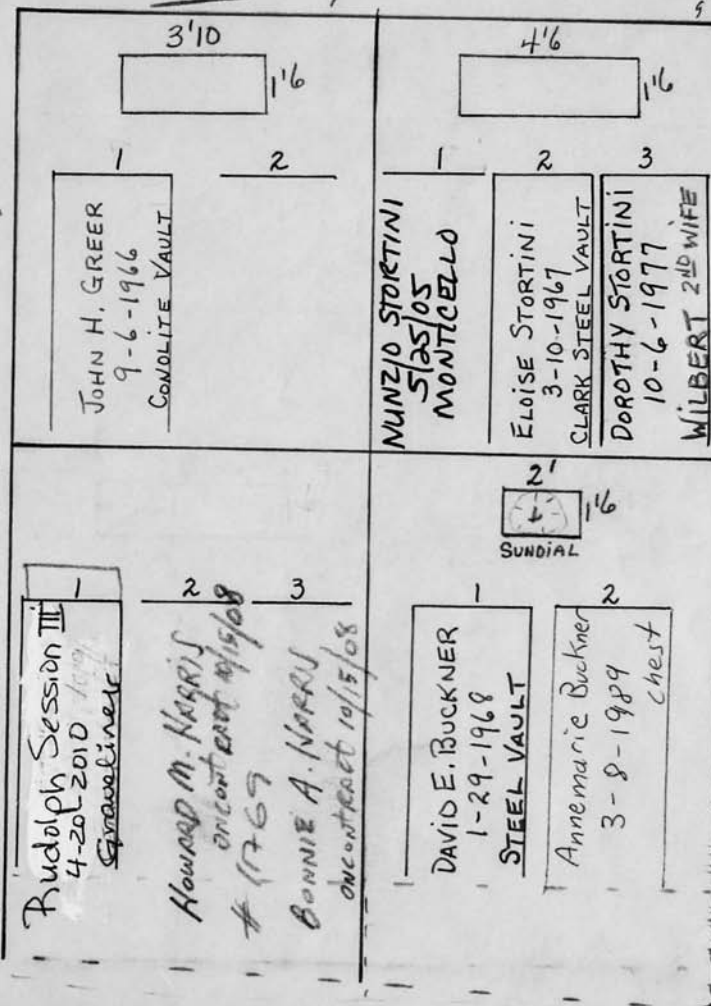 3'10
1'6
1
2
JOHN H. GREER
9-6-1966
CONOLITE VAULT
4'6
1'6
1
2
3
NUNZIO STORTINI
5/25/05
MONTICELLO
ELOISE STORTINI
3-10-1967
CLARK STEEL VAULT
DOROTHY STORTINI
10-6-1977
WILBERT 2ND WIFE
1
2
3
Rudolph Session III
4-20-2010
Graveliner
HOWARD M. HARRIS
ONCONTRACT 10/15/08
BONNIE A. HARRIS
ONCONTRACT 10/15/08
2'
1'6
SUNDIAL
1
2
DAVID E. BUCKNER
1-29-1968
STEEL VAULT
Annemarie Buckner
3-8-1989
chest